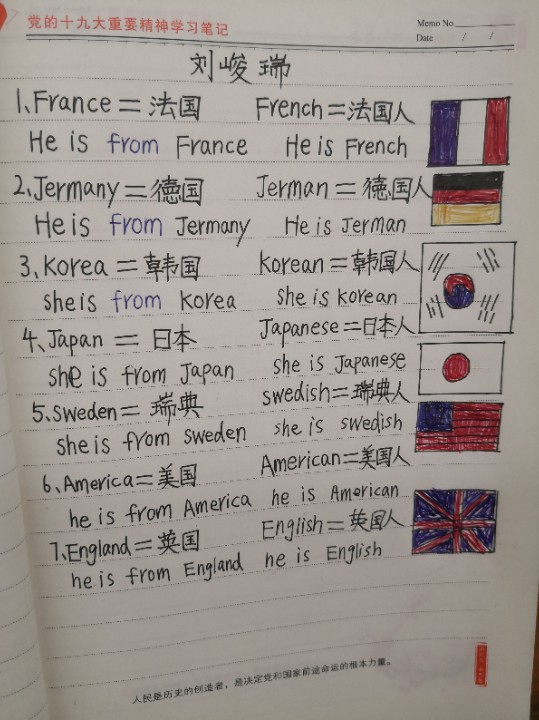 党的十九大重要精神学习笔记
Memo No.
Date / /
刘峻瑞
1、France=法国 French=法国人
He is from France He is French
2、Jermany=德国 Jerman=德国人
He is from Jermany He is Jerman
3、Korea=韩国 Korean=韩国人
she is from Korea she is korean
4、Japan=日本 Japanese=日本人
she is from Japan she is Japanese
5、Sweden=瑞典 swedish=瑞典人
she is from sweden she is swedish
6、America=美国 American=美国人
he is from America he is American
7、England=英国 English=英国人
he is from England he is English
人民是历史的创造者，是决定党和国家前途命运的根本力量。